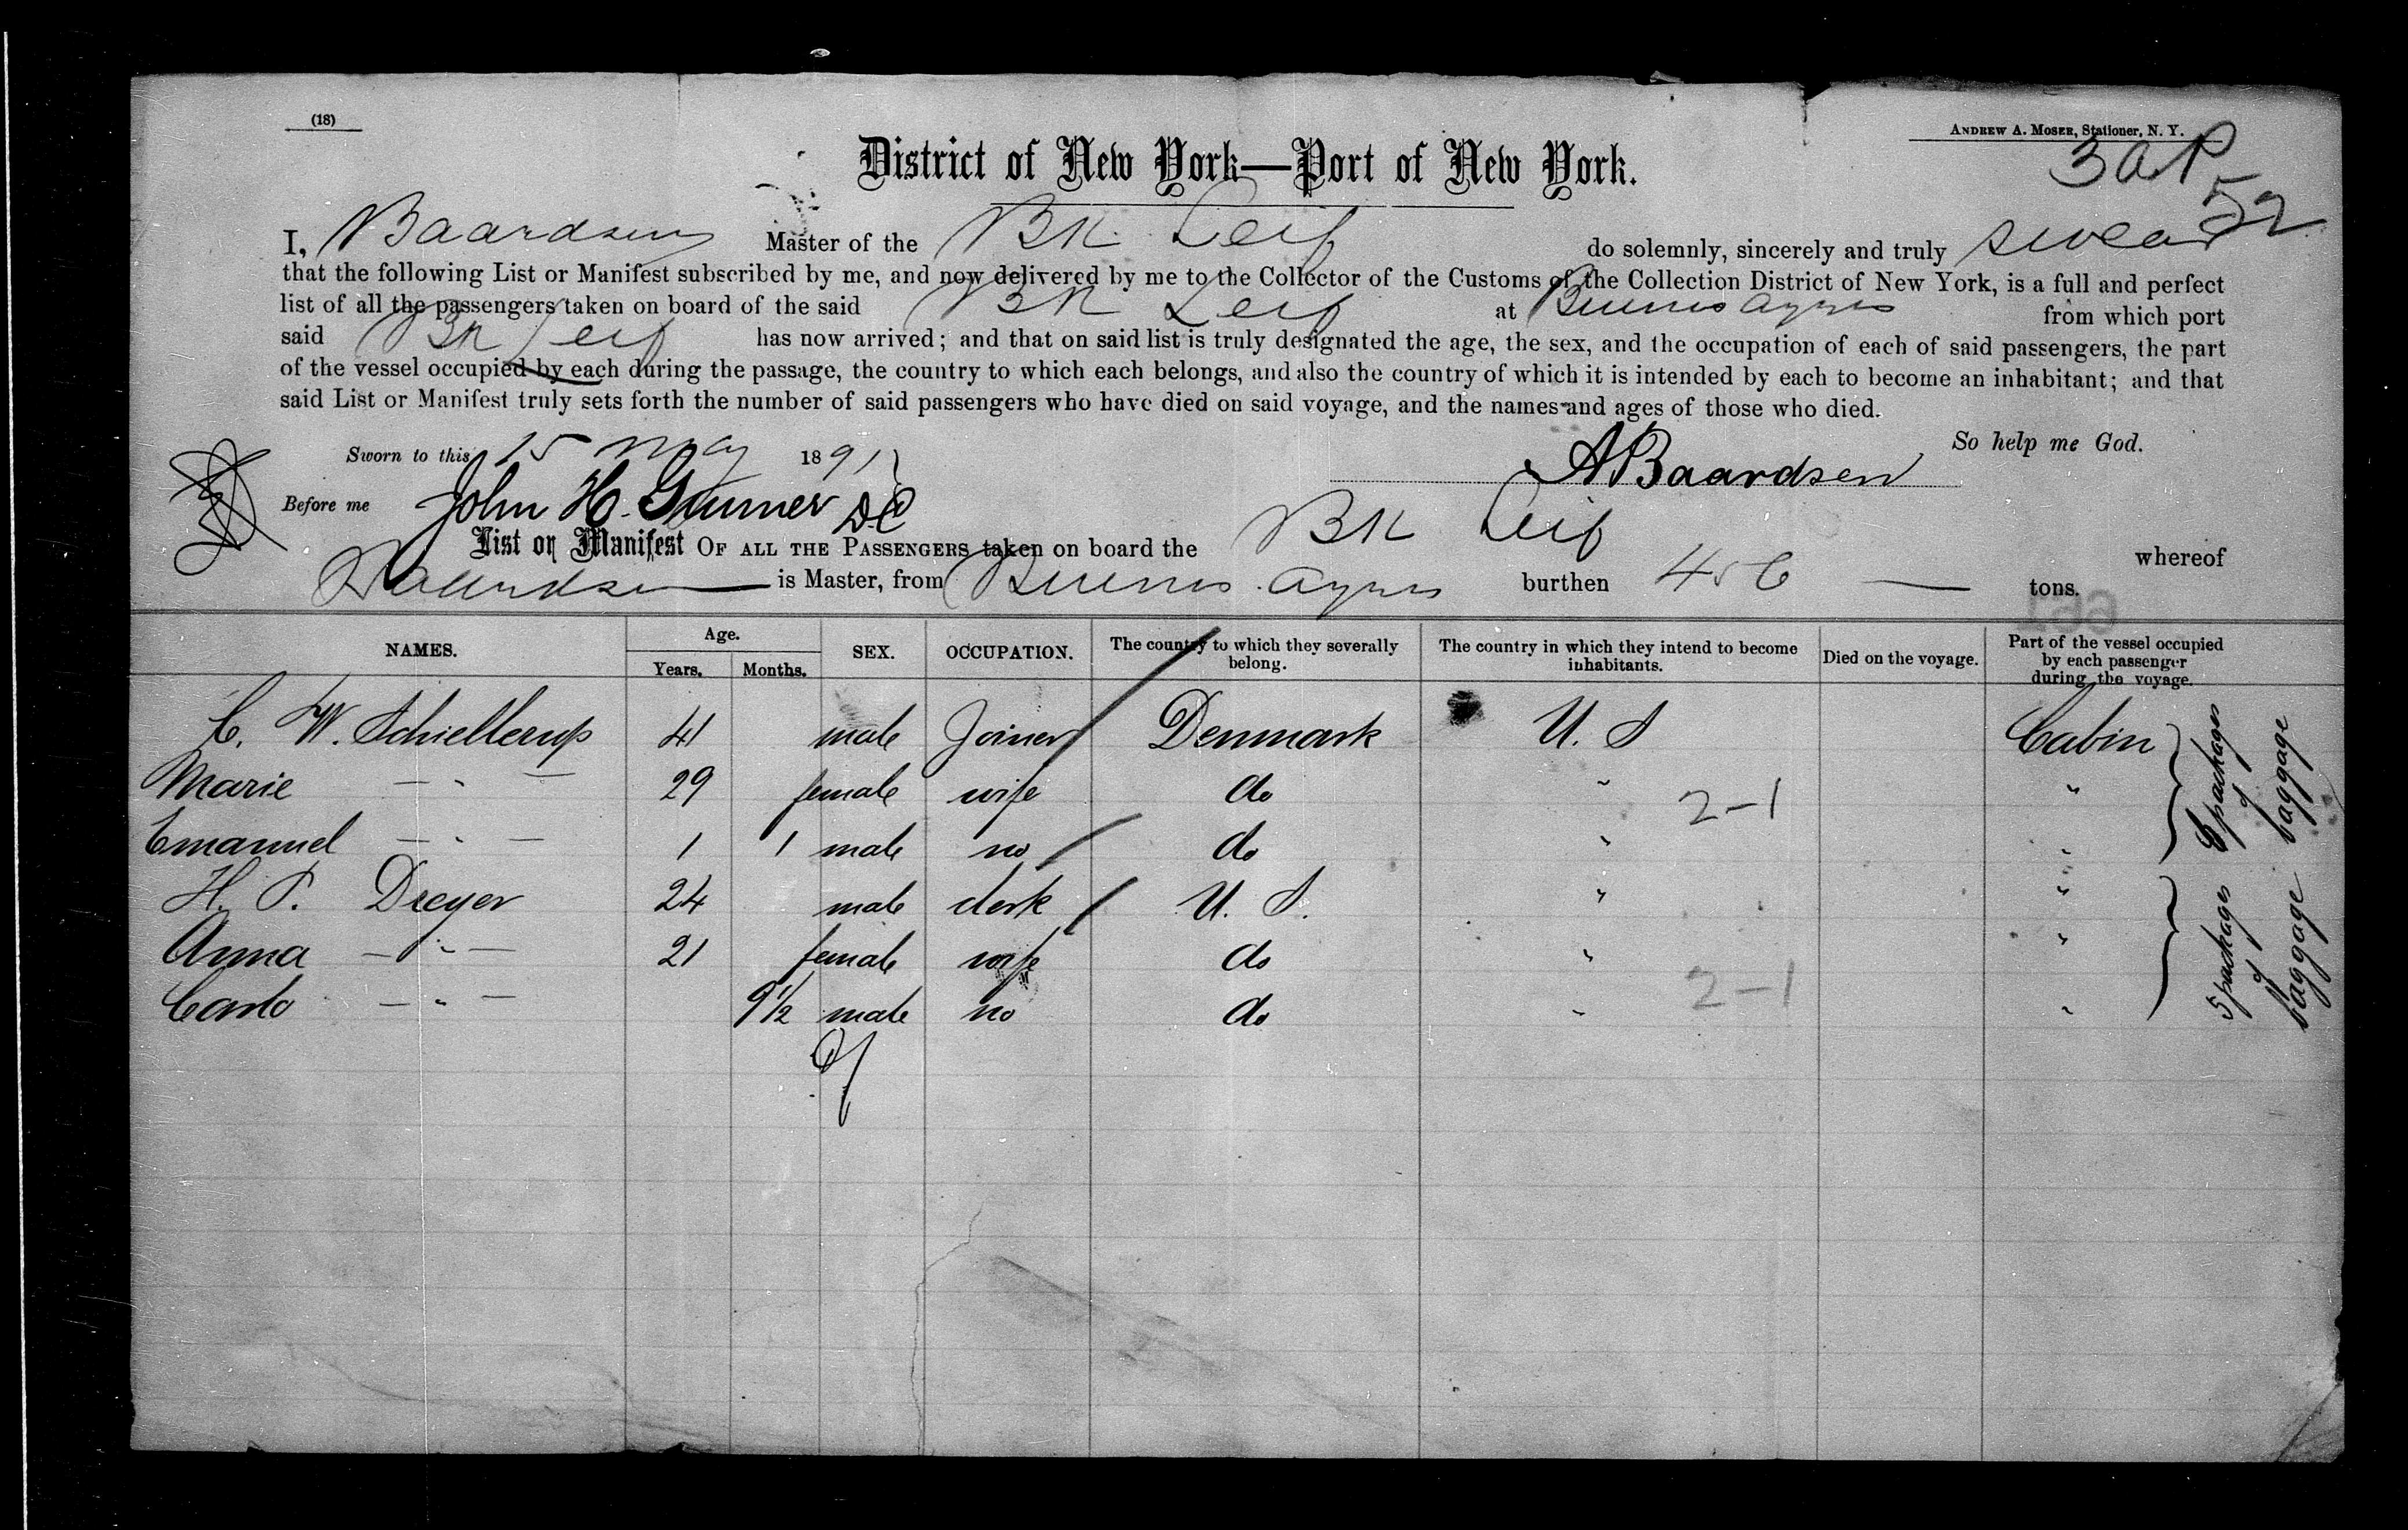 (18)
ANDREW A. MOSER, Stationer, N. Y.
District of New York—Port of New York.
52
I, Baardsen Master of the BK. Leif do solemnly, sincerely and truly swear
that the following List or Manifest subscribed by me, and now delivered by me to the Collector of the Customs of the Collection District of New York, is a full and perfect
list of all the passengers taken on board of the said BK Leif at Buenos Ayres from which port
said BK Leif has now arrived; and that on said list is truly designated the age, the sex, and the occupation of each of said passengers, the part
of the vessel occupied by each during the passage, the country to which each belongs, and also the country of which it is intended by each to become an inhabitant; and that
said List or Manifest truly sets forth the number of said passengers who have died on said voyage, and the names and ages of those who died.
So help me God.
Sworn to this 15 May 1891
A Baardsen
Before me John H. DC
List or Manifest OF ALL THE PASSENGERS taken on board the BK Leif whereof
Baardsen is Master, from Buenos Ayres burthen 456 tons.
NAMES. Age. Years. Months. SEX. OCCUPATION. The country to which they severally belong. The country in which they intend to become inhabitants. Died on the voyage. Part of the vessel occupied by each passenger during the voyage.
C. W. Schiellerup 41 male Joiner Denmark U. S Cabin
Marie — " — 29 female wife do " "
2-1
Emanuel — " — 1 1 male no do " "
packages of baggage
H. P. Dreyer 24 male clerk U. S. " "
Anna — " — 21 female wife do " "
2-1
Carlo — " — 9 1/2 male no do " "
5 packages of baggage